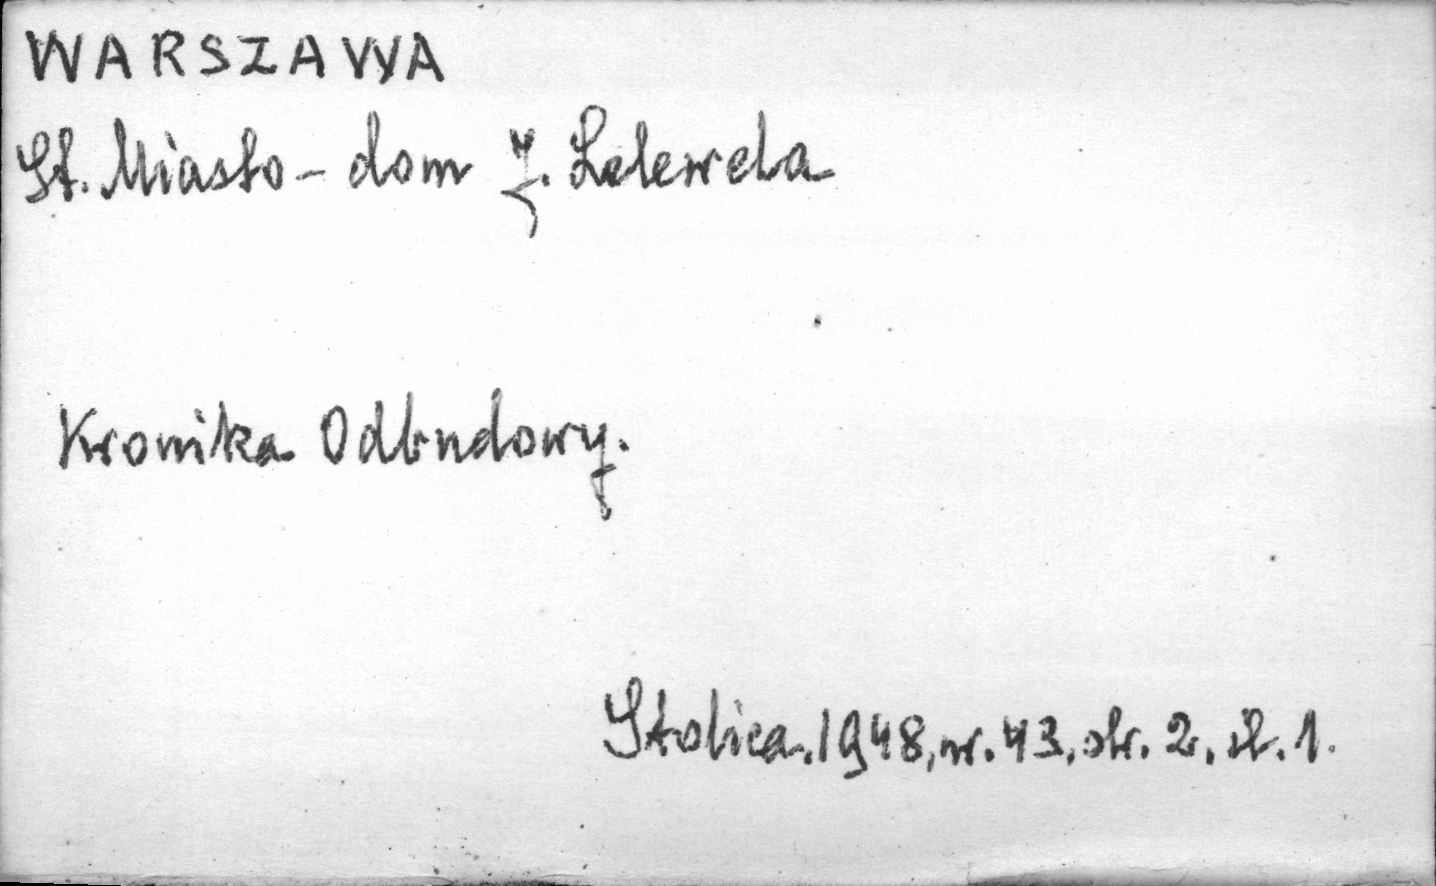 WARSZAWA
St. Miasto - dom J. Lelewela
Kronika Odbudowy.
Stolica, 1948, nr. 43, str. 2, il. 1.